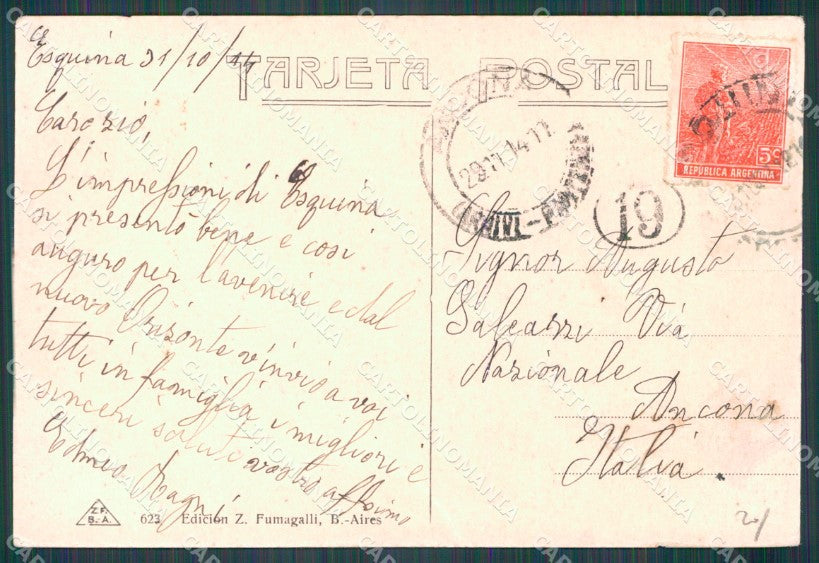 Esquina 31/10/14
TARJETA POSTAL
Caro zio,
L'impressioni di Esquina
si presentò bene e così
auguro per l'avenire e dal
nuovo Orisonte v'invio a voi
tutti in famiglia i migliori e
sinceri saluti vostro affsimo
29.11.14.17
ARRIVI-
19
5c
REPUBLICA ARGENTINA
Signor Augusto
Galeazzi Via
Nazionale
Ancona
Italia.
Z.F.
B.A.
623 Edición Z. Fumagalli, B.-Aires
CARTOLINOMANIA